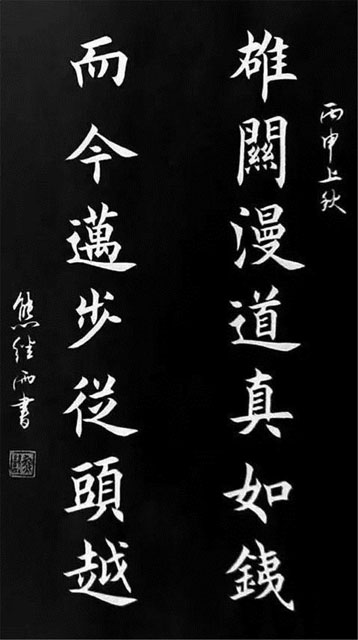 丙申上秋
雄關漫道真如鐵
而今邁步從頭越
熊繼雨書